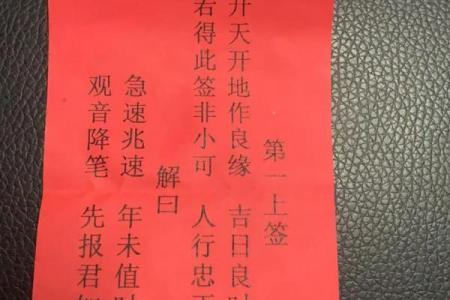 第一上签
开天开地作良缘 吉日良时
若得此签非小可 人行忠正
解曰
急速兆速 年未值时
观音降笔 先报君知